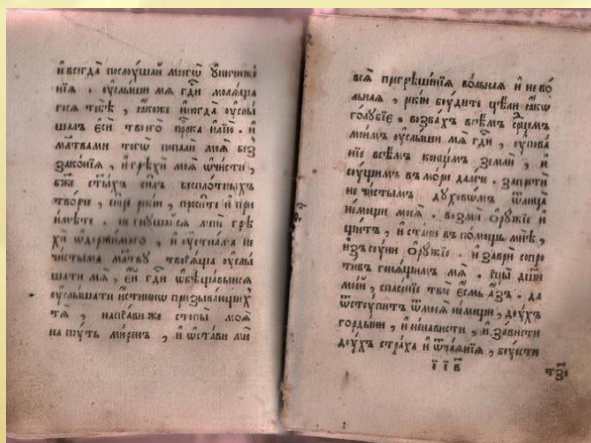 и҆ всегда̀ послоушаи моегѡ̀ ᲂу҆ничиже
нїѧ . ᲂу҆слыши мѧ гдⷭ҇и молѧща
госѧ тебѣ̀ , ꙗ҆коже иногда ᲂу҆слы
шалъ є҆сѝ твоего̀ прⷪ҇ка и҆лїю̀ . и҆
мл҃твами тогѡ̀ попали моѧ̀ без
зако́нїѧ , и҆ грѣхѝ моѧ̀ ѡ҆чи́сти ,
бж҃е ст҃ы́хъ си́лъ бесплотныхъ
твори , рки , прости́те и҆ при
имѣте . не гнушаисѧ менѐ грѣ
хи ѡ҆держимаго , и҆ ᲂу҆стнама не
чи́стыма мл҃тву твоѧща ᲂу҆слы
шати мѧ̀ , є҆ѝ гдⷭ҇и ѡ҆бѣщавыисѧ
ᲂу҆слы́шати и҆́стинною призывающих
тѧ̀ , напра́ви же стопы̀ моѧ̀
на пꙋть ми́ренъ , и҆ ѡ҆ста́ви мѝ
всѧ̀ прегрѣше́нїѧ во́льнаѧ и҆ нево́
льнаѧ , рки бꙋдите цѣли ꙗ҆кѡ
голꙋбїе . воззва́хъ всѣ́мъ срⷣцемъ
мои́мъ ᲂу҆слы́ши мѧ̀ гдⷭ҇и , ᲂу҆пова
нїе всѣ́мъ конце́мъ землѝ , и҆
сꙋщимъ въ мори дале́че . запрети́
нечи́стымъ дꙋховѡ́мъ ѿ лица̀
не́мощи моеѧ̀ . возмѝ ѻ҆рꙋ́жїе и҆
щи́тъ , и҆ ста́ни въ по́мощь мнѣ̀ ,
и҆зсꙋни ѻ҆рꙋ́жїе . и҆ заврѝ сопро
ти́въ гонѧ́щимъ мѧ̀ . рцы̀ дш҃и
мое́й , спасе́нїе твоѐ є҆́смь а҆́зъ . да
ѿстꙋ́питъ ѿ моеѧ̀ не́мощи , дꙋ́хъ
горды́ни , и҆ не́нависти , и҆ за́висти
дꙋ́хъ стра́ха и҆ ѿча́ѧнїѧ , бꙋести